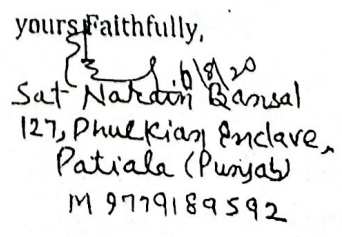 yours Faithfully,
6/8/20
Sat Narain Bansal
127, Phulkian Enclave,
Patiala (Punjab)
M 9779189592